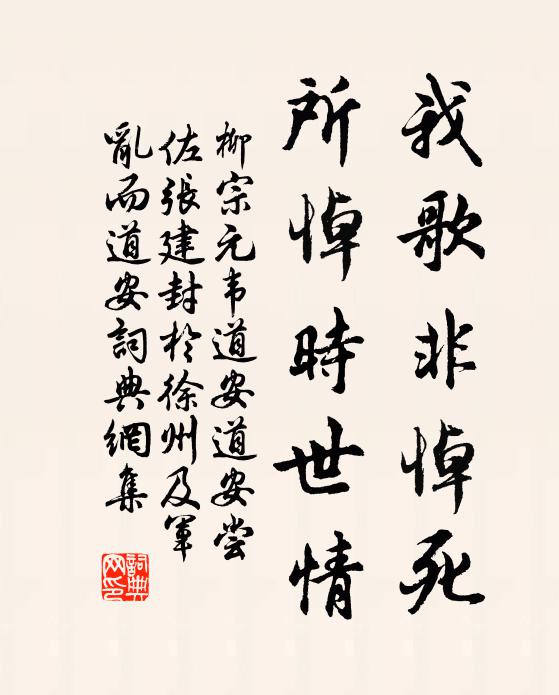 我歌非悼死
所悼時世情
柳宗元韦道安道安嘗
佐張建封於徐州及軍
亂而道安詞典網集
詞典网印